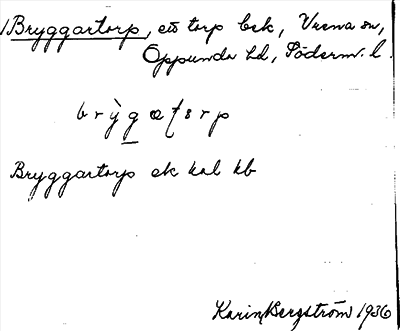 1 Bryggartorp, ett torp bek, Vrena sn,
Oppunda hd, Söderm. l.
Bryggartorp ek kal kb
Karin Bergström 1936